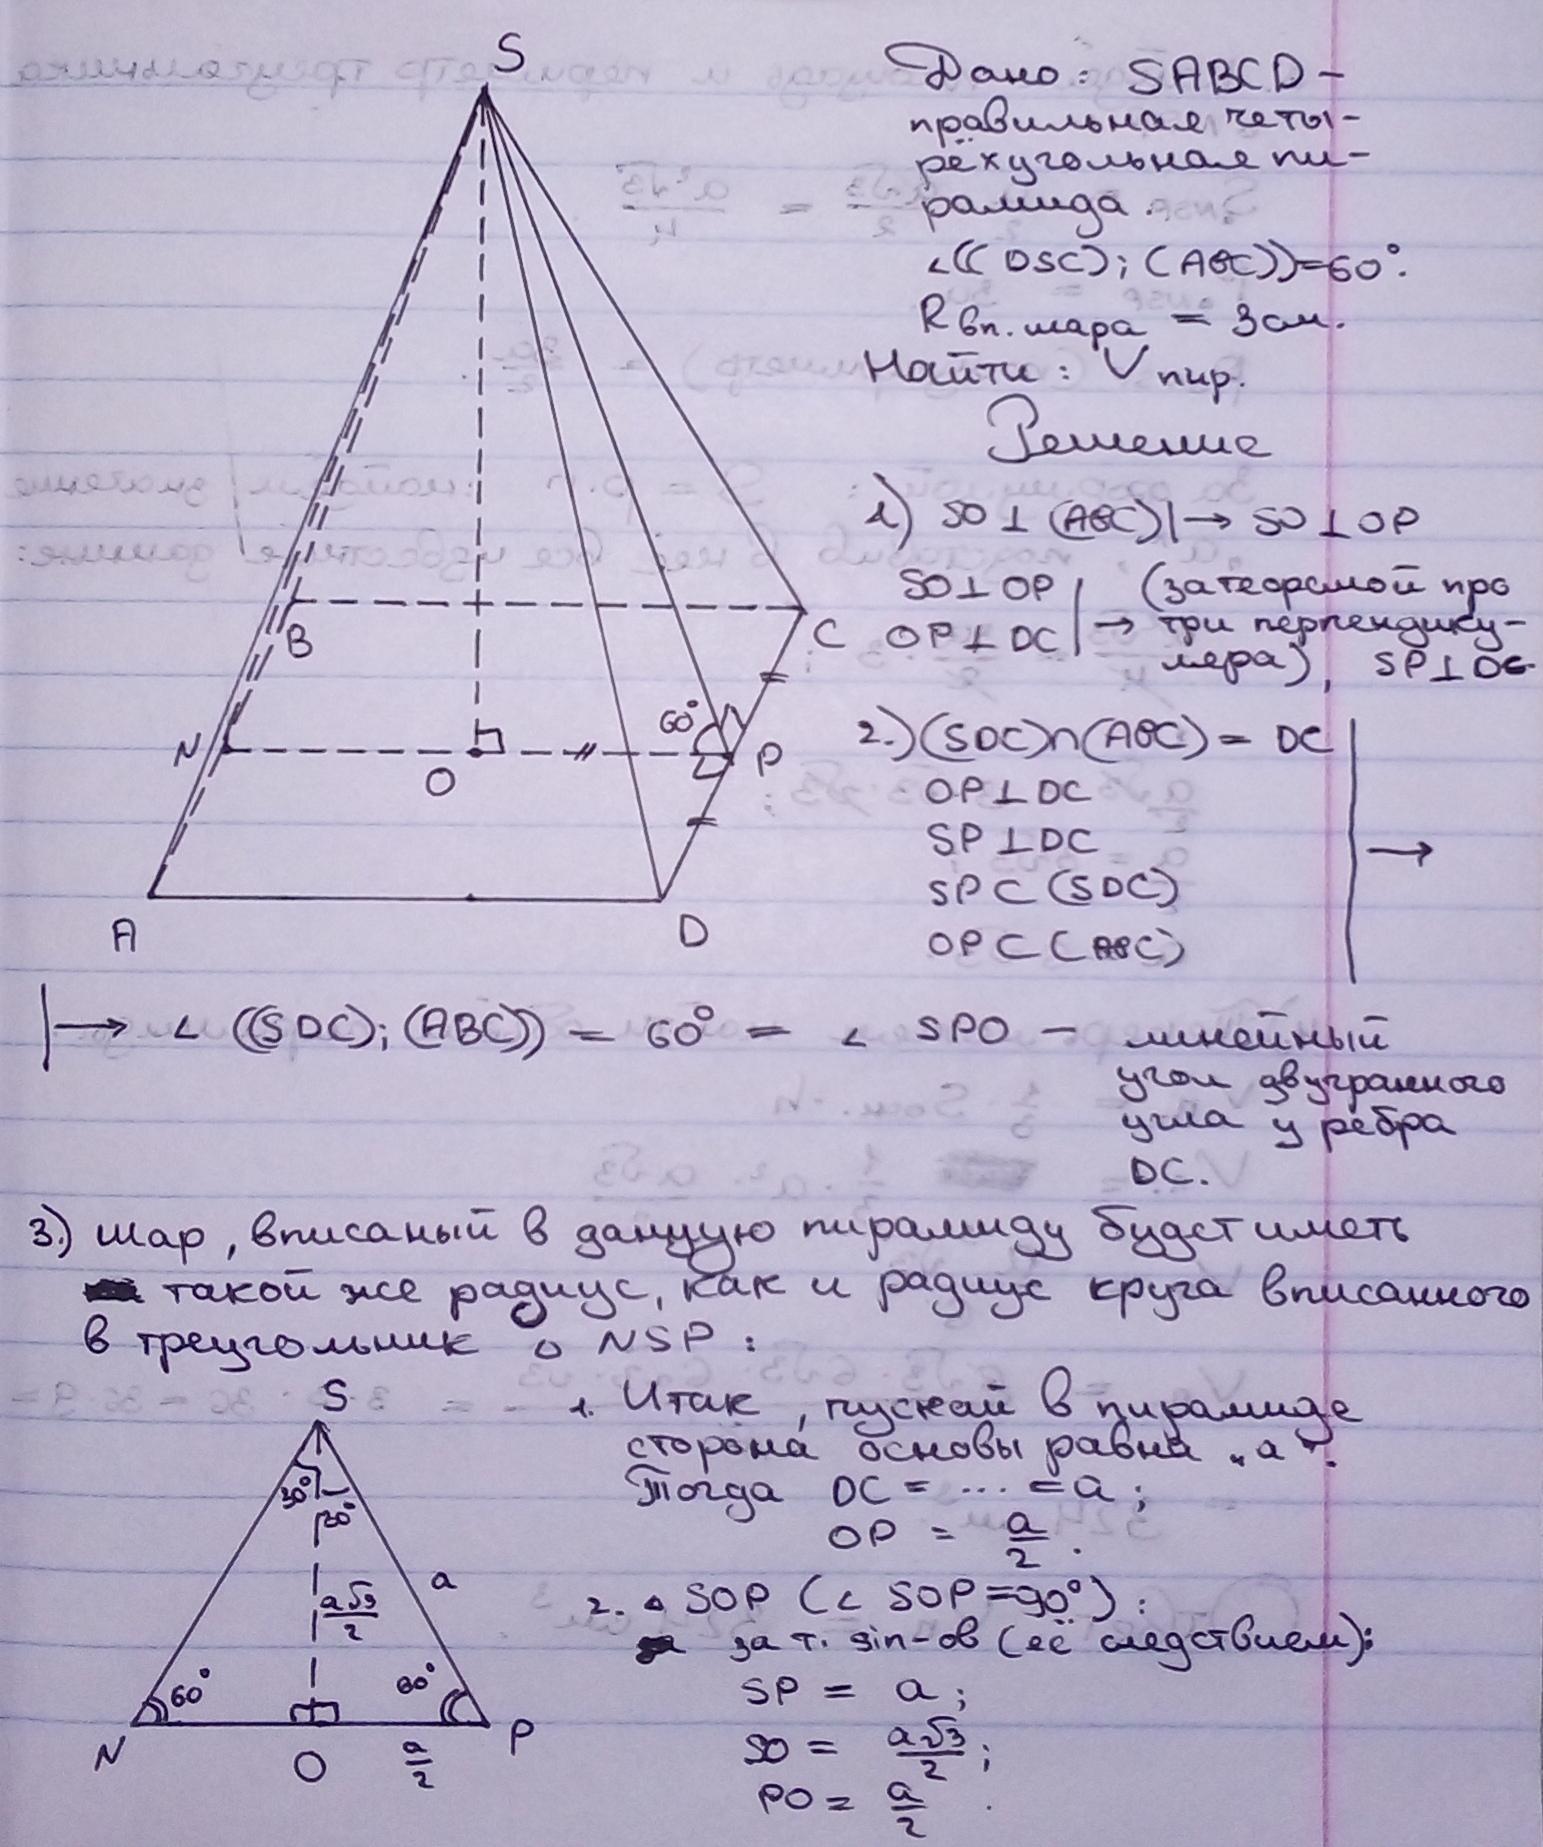 S
B
C
N
O
P
60°
A
D
Дано: SABCD –
правильная четы-
рёхугольная пи-
рамида.
∠((DSC); (ABC))=60°.
R вп. шара = 3см.
Найти: V пир.
Решение
1) SO⊥(ABC)|→ SO⊥OP
SO⊥OP
OP⊥DC |→ (за теоремой про
три перпендику-
ляра), SP⊥DC.
2.) (SDC)∩(ABC) = DC
OP⊥DC
SP⊥DC
SP⊂(SDC)
OP⊂(ABC)
|→
|→ ∠((SDC);(ABC)) = 60° = ∠SPO – линейный
угол двугранного
угла у ребра
DC.
3.) шар, вписаный в данную пирамиду будет иметь
такой же радиус, как и радиус круга вписанного
в треугольник △ NSP:
S
30°
30°
a
a√3/2
60°
60°
N
O
a/2
P
1. Итак, пускай в пирамиде
сторона основы равна „a“.
Тогда DC = ... = a;
OP = a/2.
2. △ SOP (∠ SOP=90°):
за т. sin-ов (её следствием):
SP = a;
SO = a√3/2;
PO = a/2.